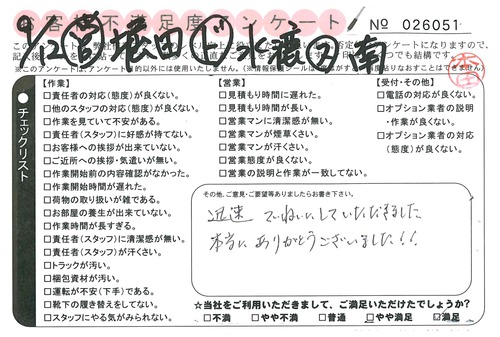 お客様不満足度アンケート
№ 026051
【作業】
□責任者の対応(態度)が良くない。
□他のスタッフの対応(態度)が良くない。
□作業を見ていて不安がある。
□責任者(スタッフ)に好感が持てない。
□お客様への挨拶が出来ていない。
□ご近所への挨拶・気遣いが無い。
□作業開始前の内容確認がなかった。
□作業開始時間が遅れた。
□荷物の取り扱いが雑である。
□お部屋の養生が出来ていない。
□作業時間が長すぎる。
□責任者(スタッフ)に清潔感が無い。
□責任者(スタッフ)が汗くさい。
□トラックが汚い。
□梱包資材が汚い。
□運転が不安(下手)である。
□靴下の履き替えをしてない。
□スタッフにやる気がみられない。
【営業】
□見積もり時間に遅れた。
□見積もり時間が長い。
□営業マンに清潔感が無い。
□営業マンが煙草くさい。
□営業マンが汗くさい。
□営業態度が良くない。
□営業の説明と作業が一致してない。
【受付・その他】
□電話の対応が良くない。
□オプション業者の説明
・作業が良くない。
□オプション業者の対応
(態度)が良くない。
チェックリスト
その他、ご意見・ご要望等ありましたらお書き下さい。
迅速 ていねいにしていただきました
本当に ありがとうございました!!
☆当社をご利用いただきまして、ご満足いただけたでしょうか?
□不満 □やや不満 □普通 □やや満足 ☑満足